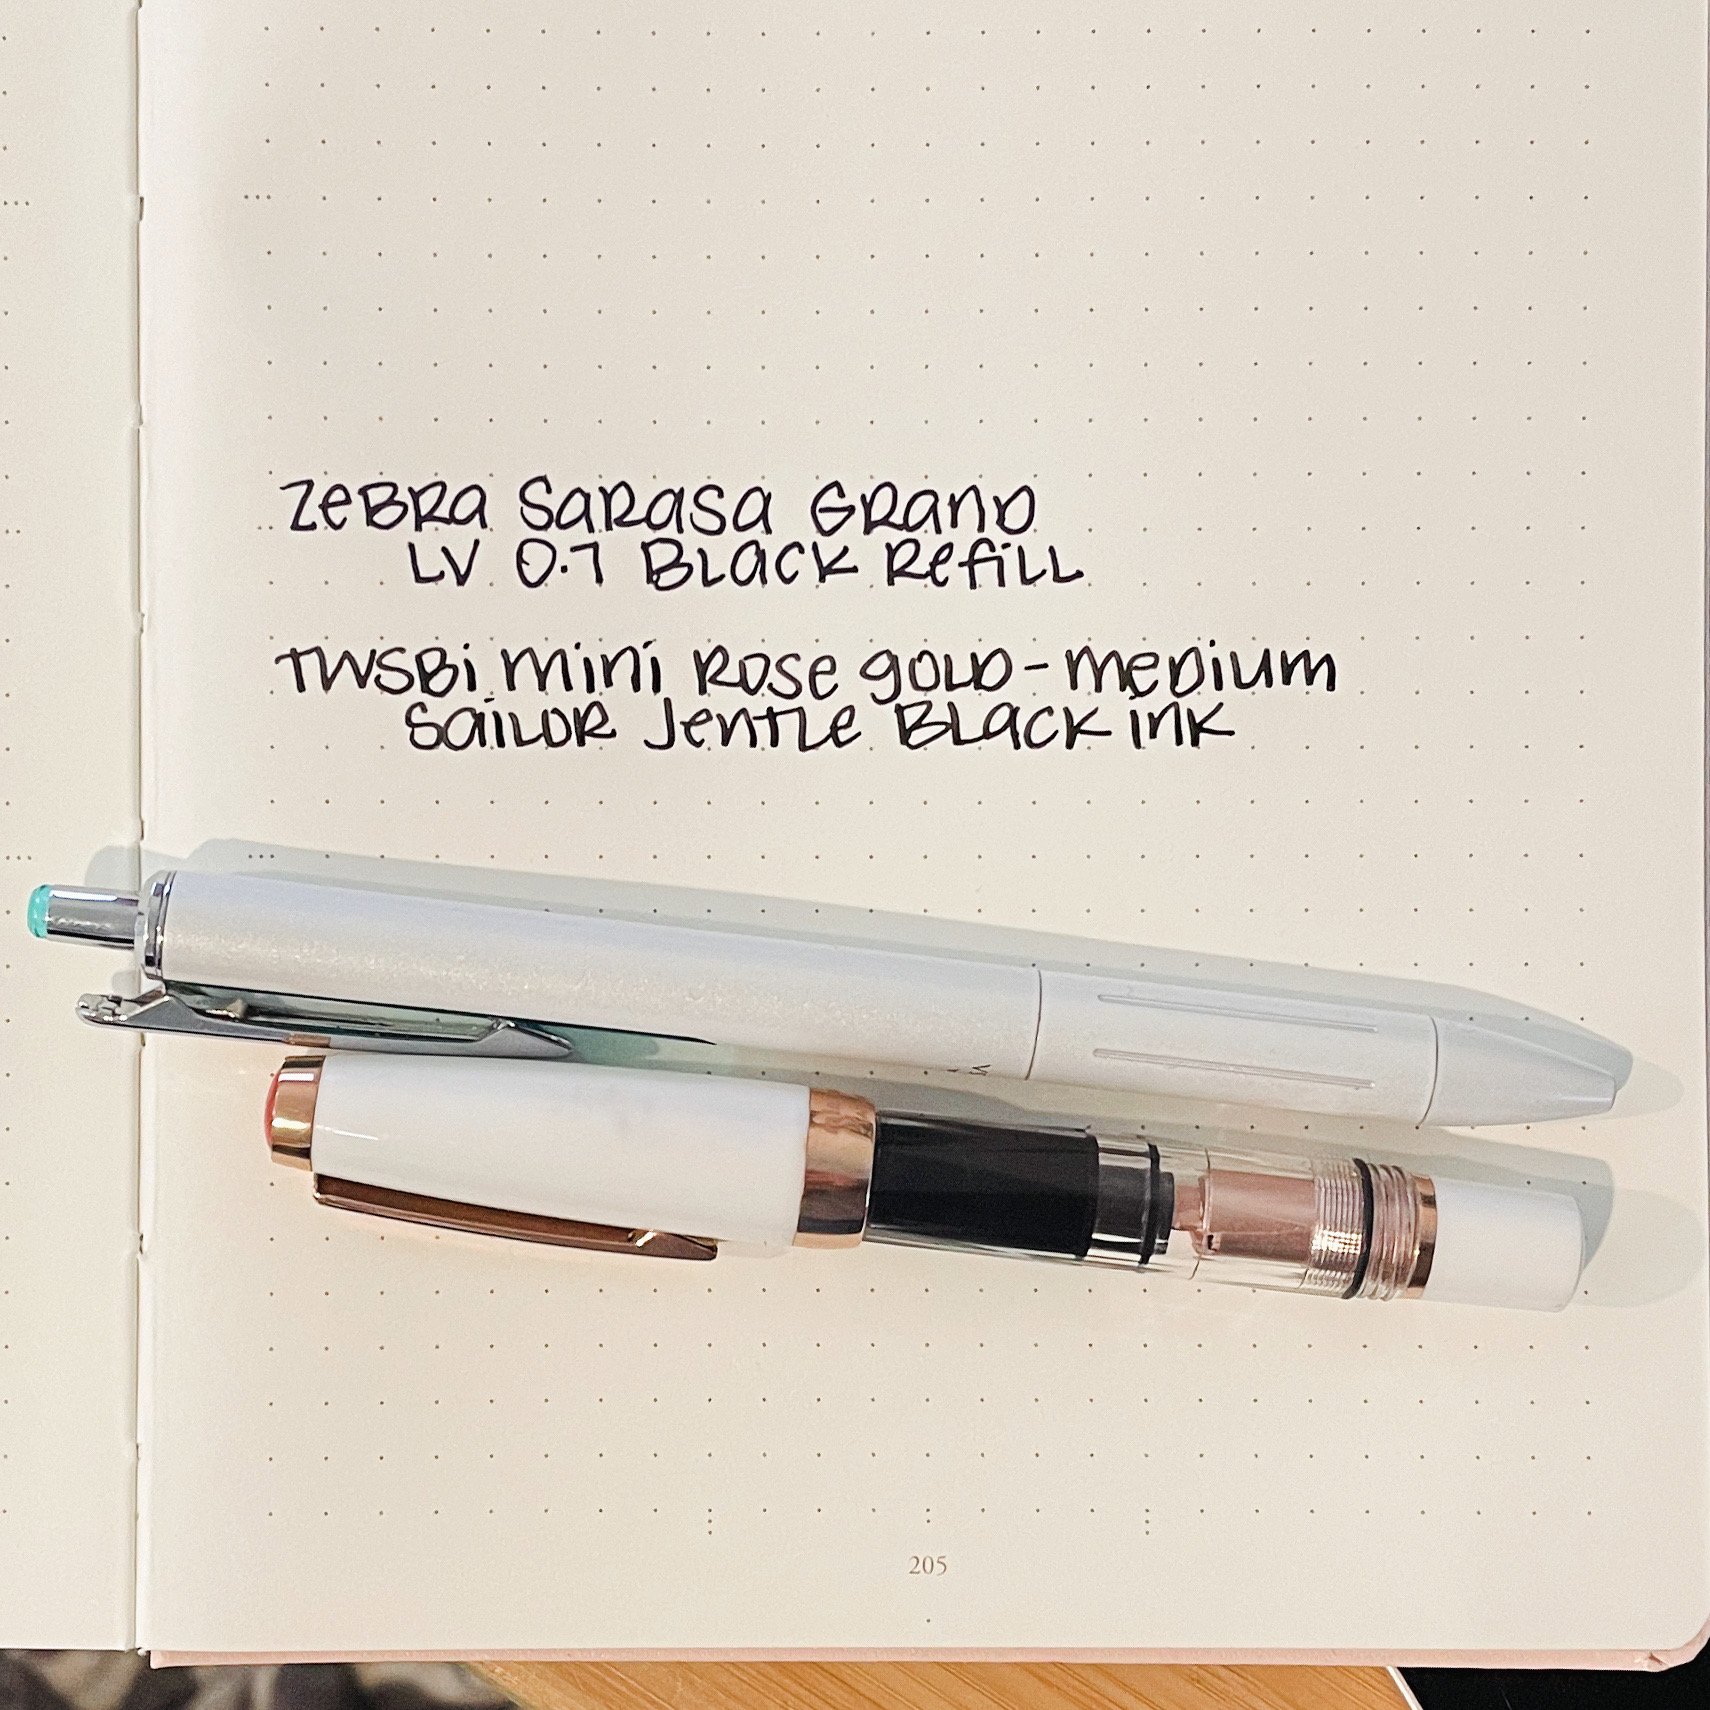 ZeBRa SaRaSa GRanD
LV 0.7 BLacK RefiLL
TWSBi mini Rose goLD-meDium
SaiLoR JenTLe BLacK inK
205